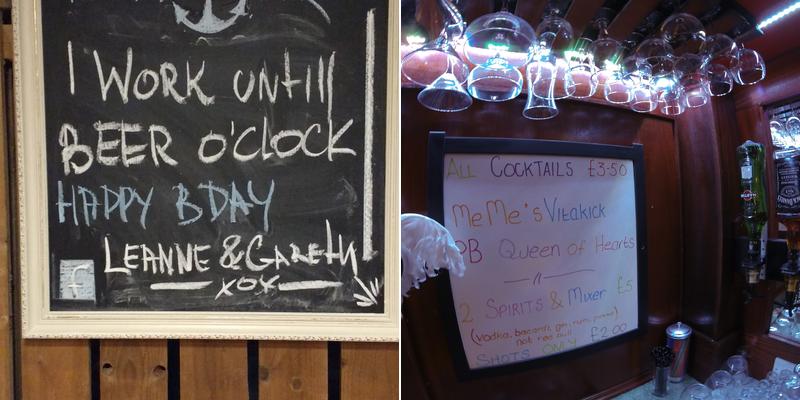 I WORK UNTIll
BEER O'CLOCK
HAPPY BDAY
LEANNE & GARETH
XOX
f
ALL COCKTAILS £3-50
MeMe's Vitakick
PB Queen of Hearts
2 SPIRITS & Mixer £5
(vodka, bacardi, gin, rum,
not red bull
SHOTS ONLY £2.00